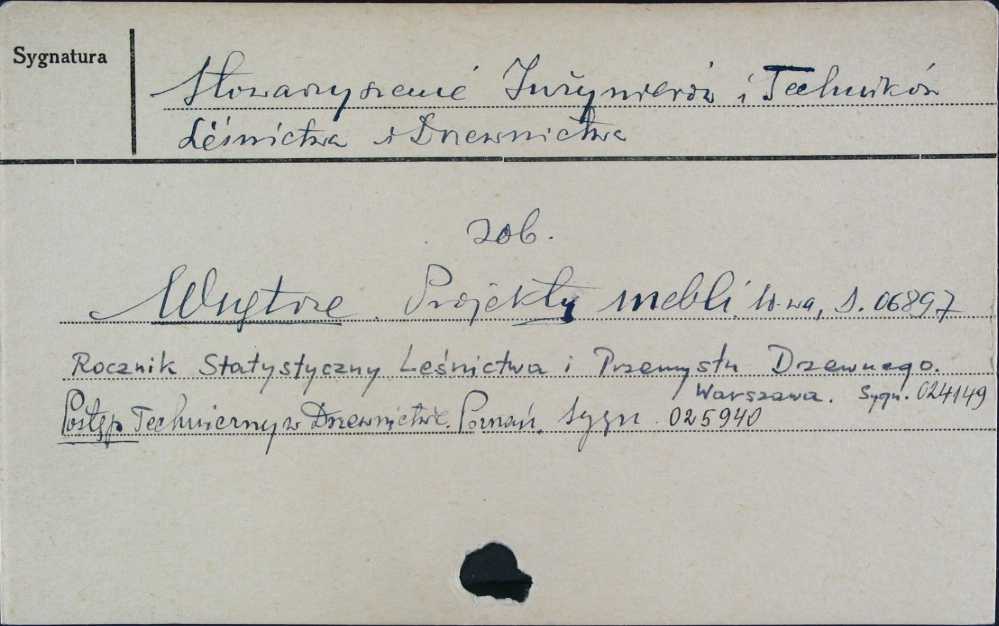 Sygnatura
Stowarzyszenie Inżynierów i Techników
Leśnictwa i Drzewnictwa
zob.
Wnętrze Projekty mebli. W-wa, S. 06897
Rocznik Statystyczny Leśnictwa i Przemysłu Drzewnego.
Warszawa. Sygn. 024149
Postęp Techniczny w Drzewnictwie. Poznań. Sygn. 025940